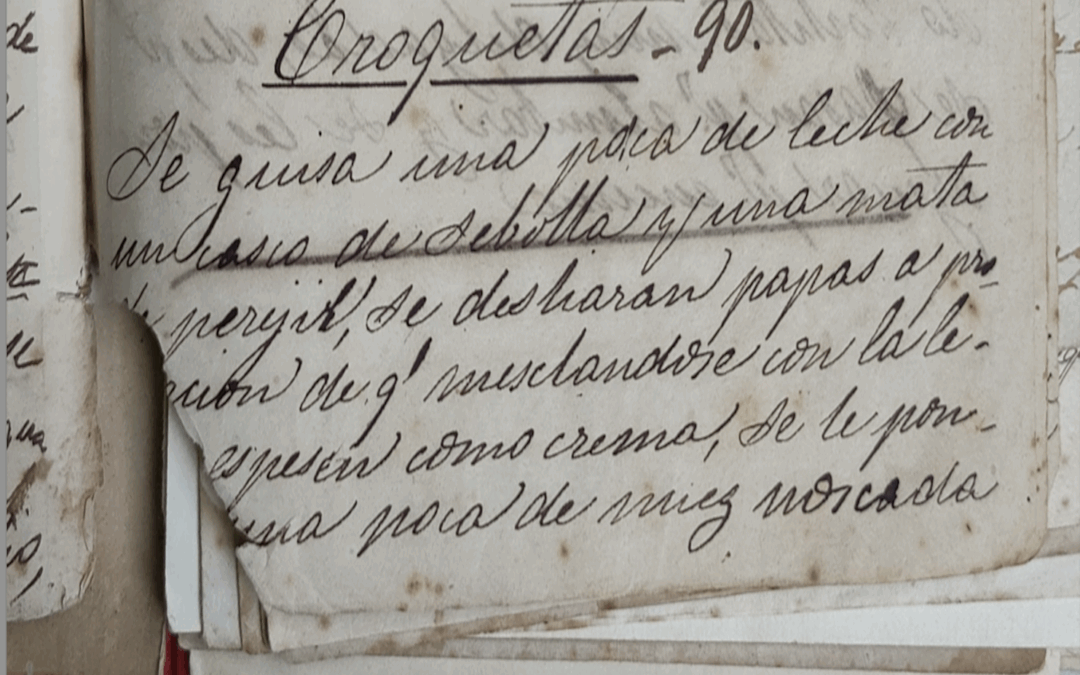 Croquetas - 90.
Se guisa una poca de leche con
un casco de sebolla y una mata
perejil, se desharan papas a pro-
cion de q' mesclandose con la le-
espesen como crema, se le pon-
una poca de nuez noscada